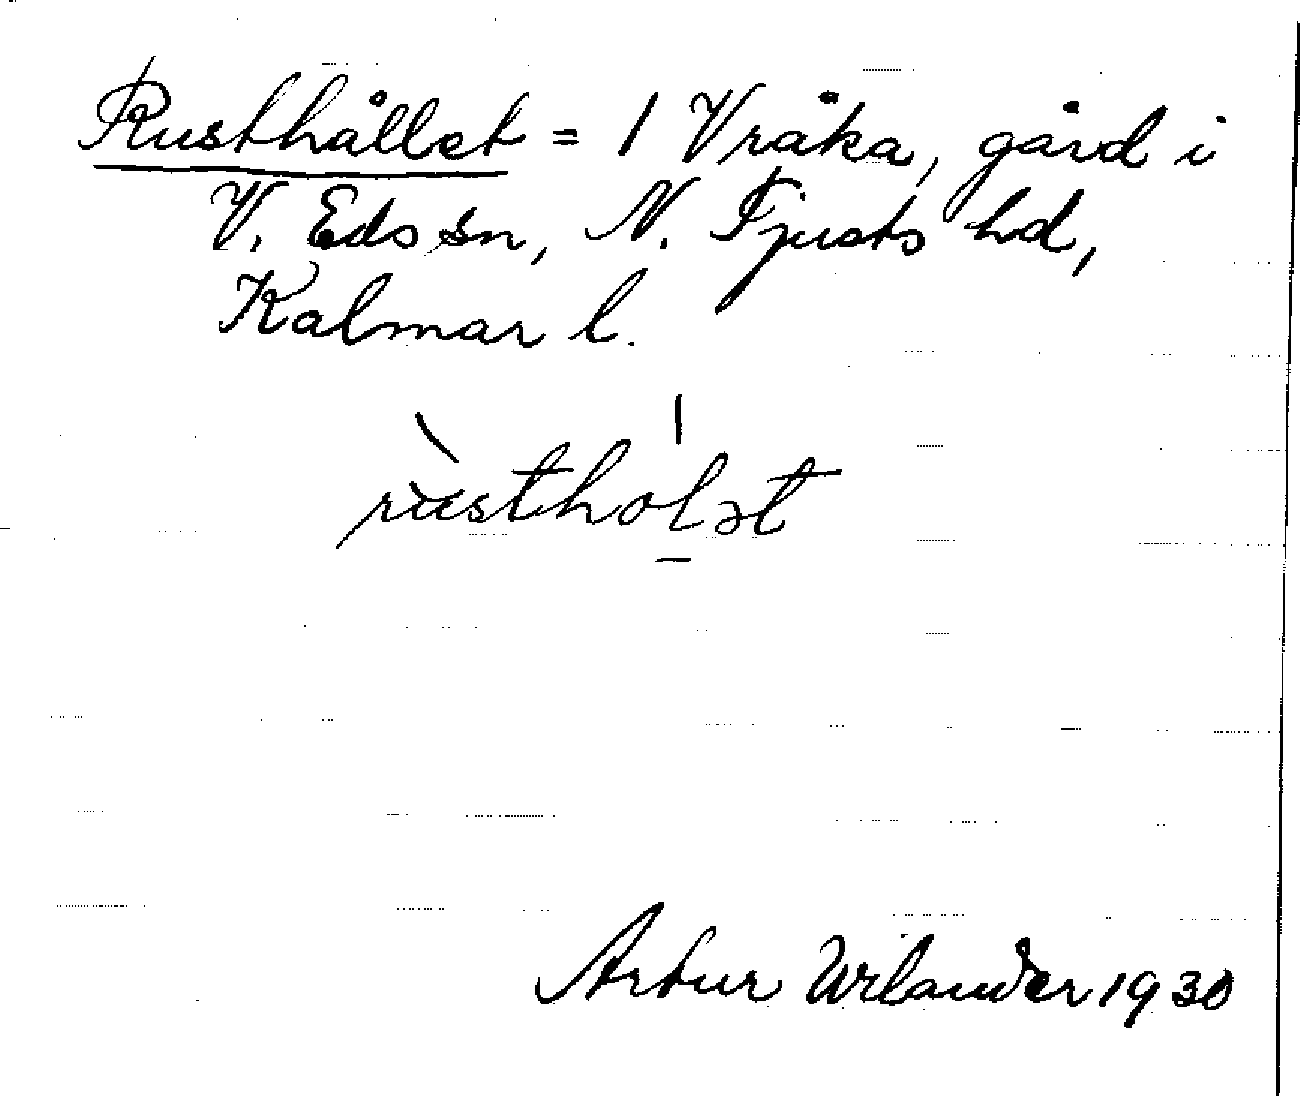 Rusthållet = 1 Vråka, gård i
V. Eds sn, N. Tjusts hd,
Kalmar l.
rustholət
Artur Wilander 1930